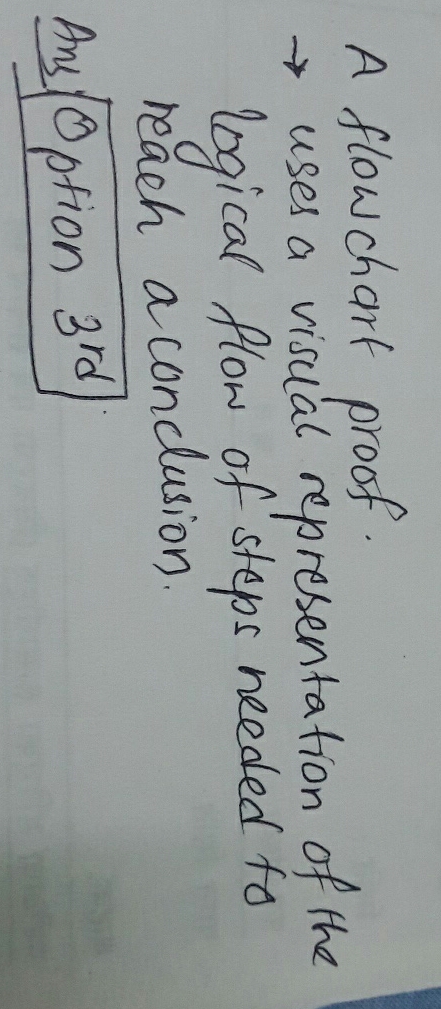 A flowchart proof.
→ uses a visual representation of the
logical flow of steps needed to
reach a conclusion.
Ans Option 3rd.